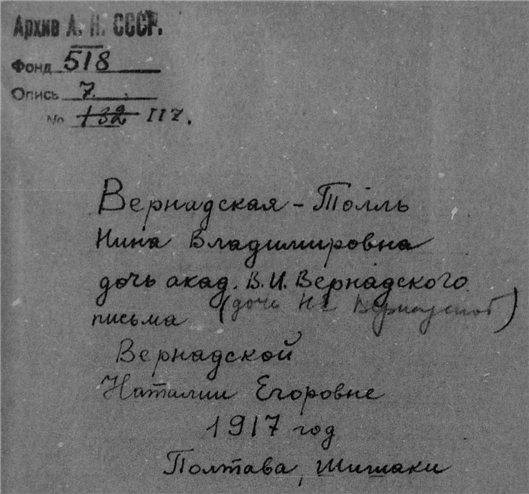 Архив А. Н. СССР.
Фонд 518
Опись 7.
№ 132 117.
Вернадская-Толль
Нина Владимировна
дочь акад. В. И. Вернадского
(дочь Н Е Вернадской)
письма
Вернадской
Наталии Егоровне
1917 год
Полтава, Шишаки